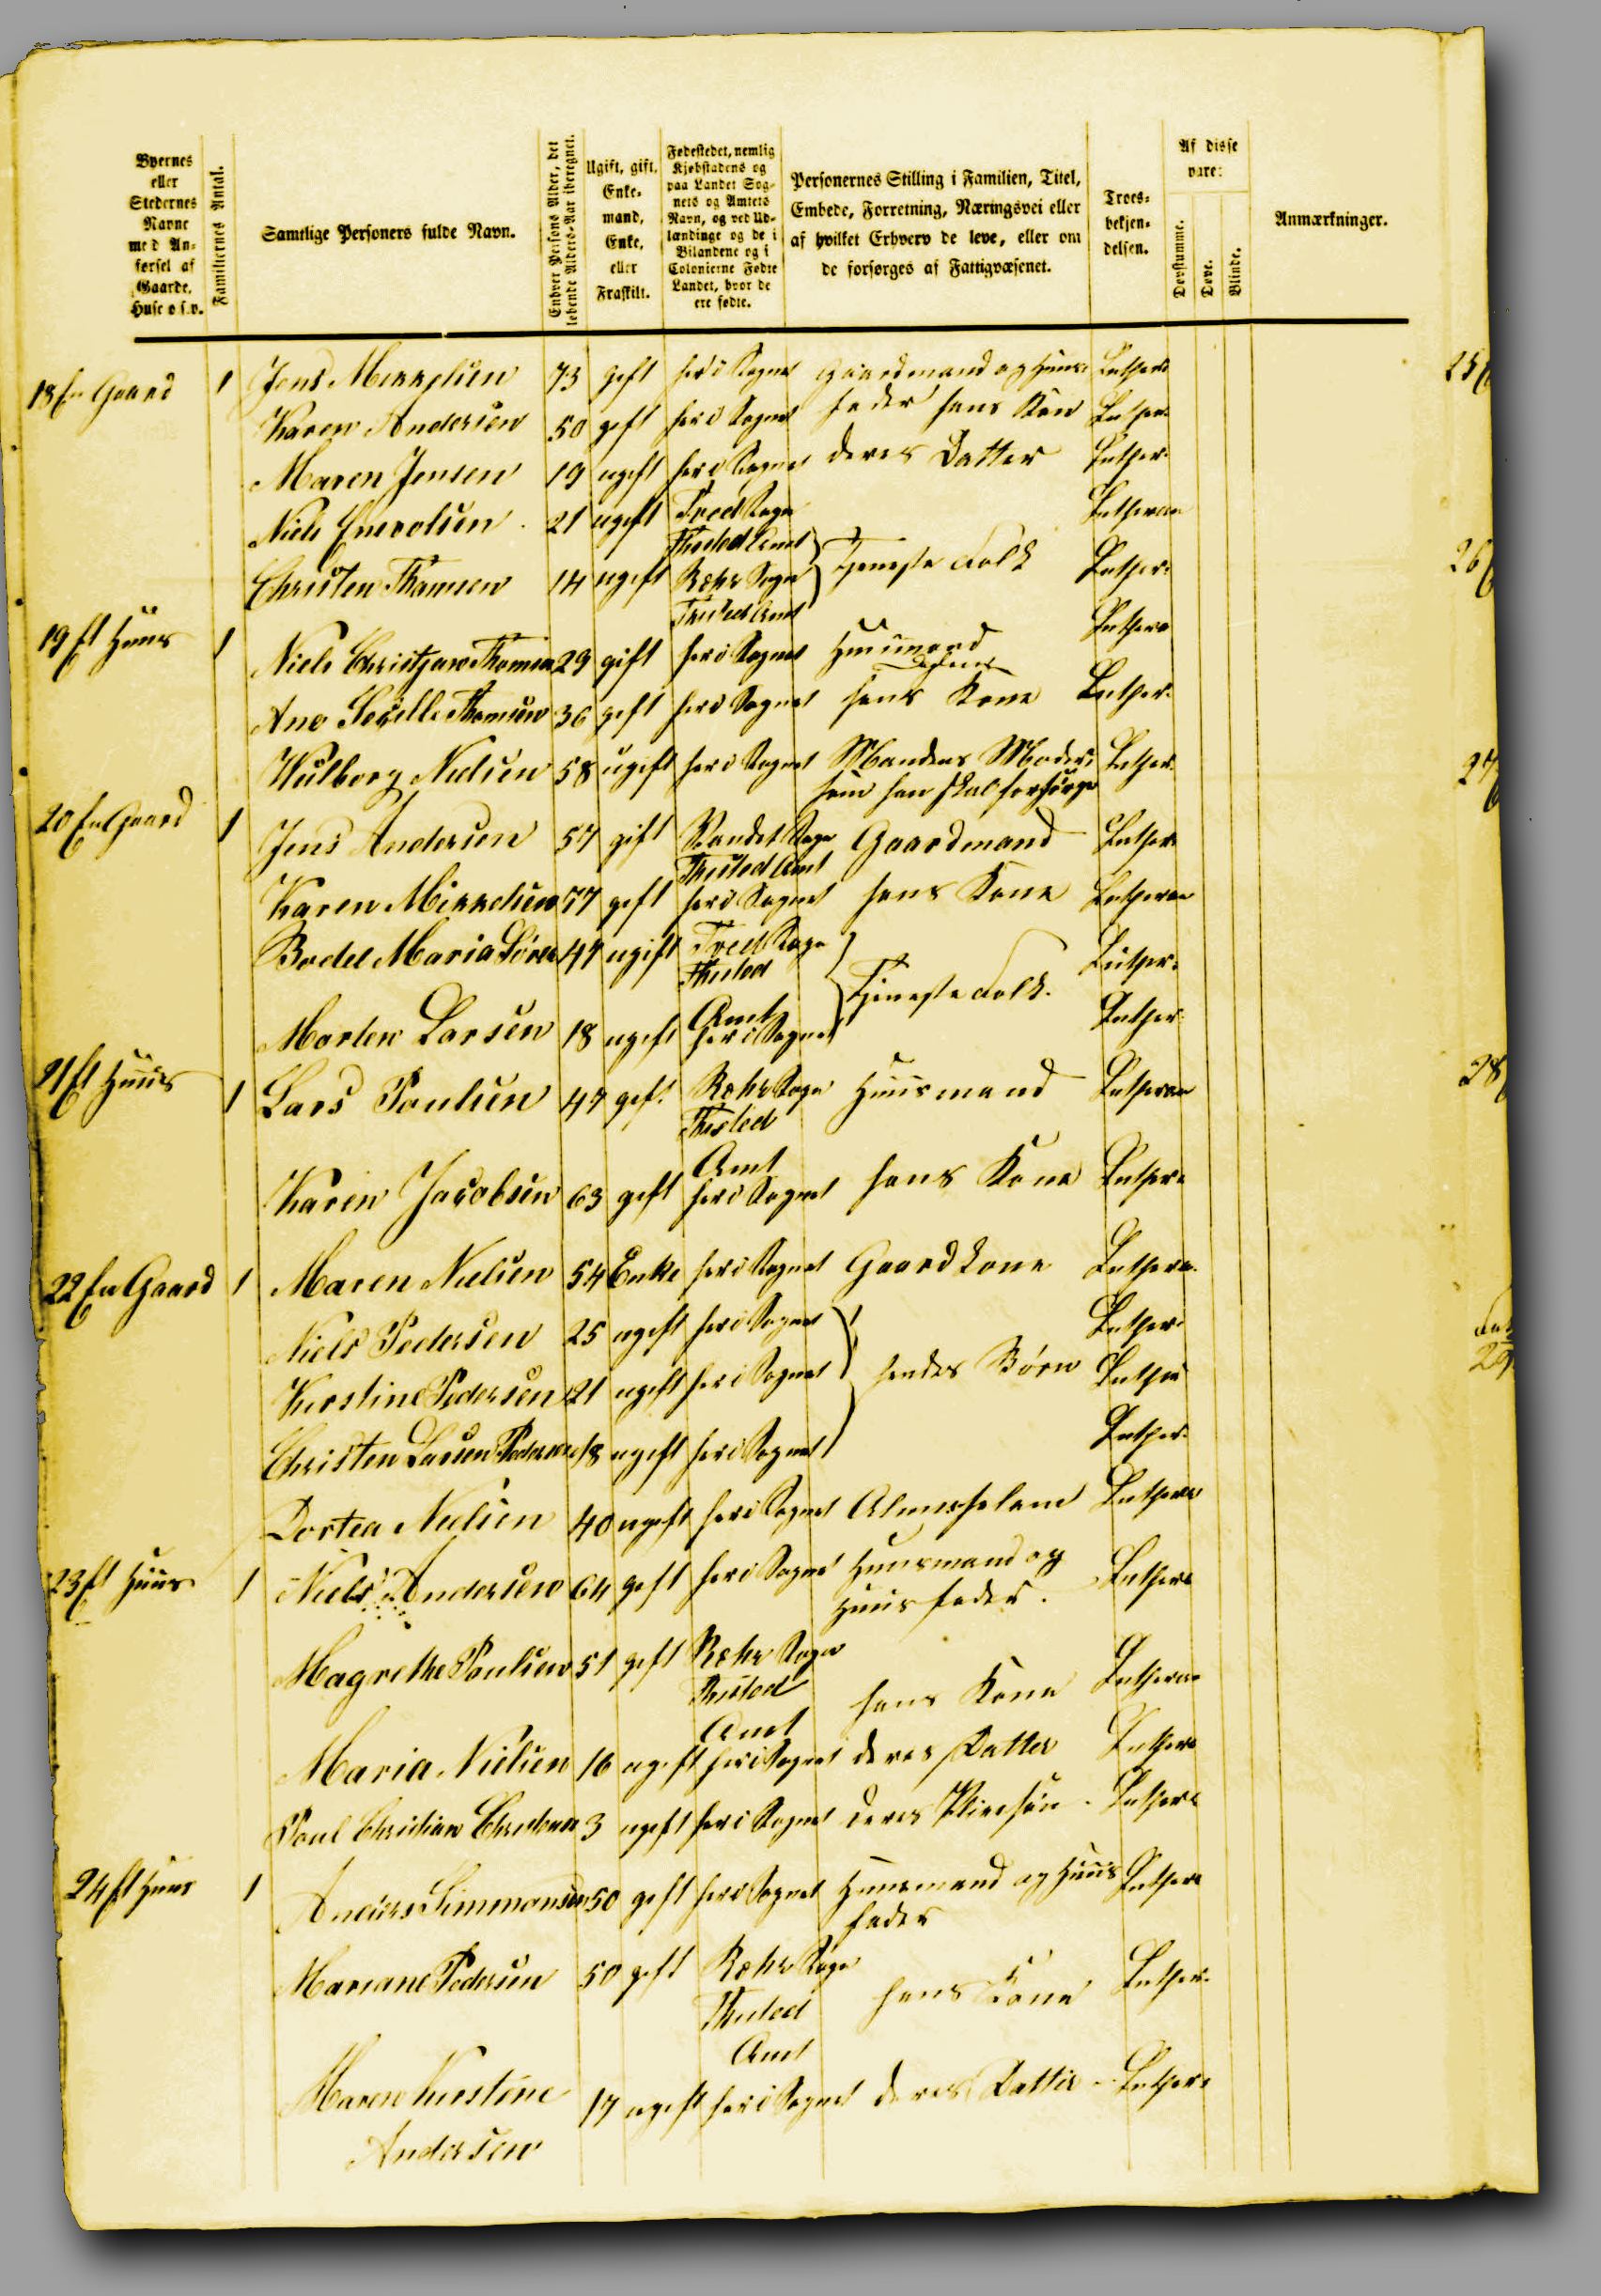 Byernes
eller
Stedernes
Navne
med An-
førsel af
Gaarde,
Huse o.s.v.
Familiernes Antal.
Samtlige Personers fulde Navn.
Enhver Persons Alder, det
løbende Alders-Aar iberegnet.
Ugift, gift,
Enke-
mand,
Enke,
eller
Fraskilt.
Fødestedet, nemlig
Kjøbstadens og
paa Landet Sog-
nets og Amtets
Navn, og ved Ud-
lændinge og de i
Bilandene og i
Colonierne Fødte
Landet, hvor de
ere fødte.
Personernes Stilling i Familien, Titel,
Embede, Forretning, Næringsvei eller
af hvilket Erhverv de leve, eller om
de forsørges af Fattigvæsenet.
Troes-
bekjen-
delsen.
Af disse
vare:
Døvstumme.
Døve.
Blinde.
Anmærkninger.
18 En Gaard 1 Jens Mikkelsen 73 gift her i Sognet Gaardmand og Huus- Luther:
Karen Andersen 50 gift her i Sognet fader hans Kone Luther:
Maren Jensen 19 ugift her i Sognet deres Datter Luther:
Niels 21 ugift Sogn Lutheran
Thisted Amt
Christen Thomsen 14 ugift Ræhr Sogn Tjeneste Folk Luther:
Thisted Amt
19 Et Huus 1 Niels Christjan Thomsen 29 gift her i Sognet Huusmand Luther
Ane Thomsen 36 gift her i Sognet hans Kone Luther:
Wulborg Nielsen 58 ugift her i Sognet Mandens Moder Luther:
som han skal forsørge
20 En Gaard 1 Jens Andersen 57 gift Vandet Sogn Gaardmand Luther
Thisted Amt
Karen Mikkelsen 77 gift her i Sognet hans Kone Lutheran
Bodel Maria 47 ugift Sogn Luther:
Thisted Tjeneste Folk.
Amt
Morten Larsen 18 ugift her i Sognet Luther:
21 Et Huus 1 Lars Poulsen 47 gift Ræhr Sogn Huusmand Lutheran
Thisted
Amt
Karen Jacobsen 63 gift her i Sognet hans Kone Luther:
22 En Gaard 1 Maren Nielsen 54 Enke her i Sognet Gaardkone Luther:
Niels Pedersen 25 ugift her i Sognet Luther:
Kirstine Pedersen 21 ugift her i Sognet hendes Børn Luther
Christen Larsen Pedersen 18 ugift her i Sognet Luther:
Dortea Nielsen 40 ugift her i Sognet Almisselem Luther
23 Et Huus 1 Niels Andersen 64 gift her i Sognet Huusmand og Luther
Huusfader.
Magrethe Poulsen 51 gift Ræhr Sogn
Thisted hans Kone Lutheran
Amt
Maria Nielsen 16 ugift her i Sognet deres Datter Luther
Poul Christian Christensen 3 ugift her i Sognet deres Pleiesøn. Luther
24 Et Huus 1 Anders Simmonsen 50 gift her i Sognet Huusmand og Huus Luther
fader
Mariane Pedersen 50 gift Ræhr Sogn hans Kone Luther:
Thisted
Amt
Maren Kirstine 17 ugift her i Sognet deres Datter Luther:
Andersen
25
26
27
28
29